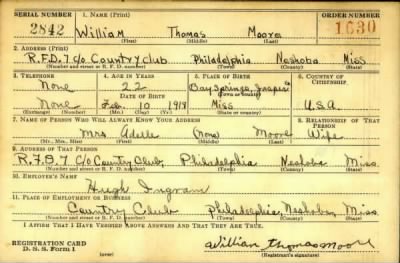 SERIAL NUMBER 1. NAME (Print) ORDER NUMBER
2842 William Thomas Moore 1630
(First) (Middle) (Last)
2. ADDRESS (Print)
R.F.D. 7 c/o Country Club Philadelphia Neshoba Miss
(Number and street or R. F. D. number) (Town) (County) (State)
3. TELEPHONE 4. AGE IN YEARS 5. PLACE OF BIRTH 6. COUNTRY OF CITIZENSHIP
None 22 Bay Springs, Jasper Co
DATE OF BIRTH (Town) (County)
None Feb. 10 1918 Miss U.S.A.
(Exchange) (Number) (Mo.) (Day) (Yr.) (State or country)
7. NAME OF PERSON WHO WILL ALWAYS KNOW YOUR ADDRESS 8. RELATIONSHIP OF THAT PERSON
Mrs Adelle (None) Moore Wife
(Mr., Mrs., Miss) (First) (Middle) (Last)
9. ADDRESS OF THAT PERSON
R.F.D. 7 c/o Country Club, Philadelphia Neshoba Miss.
(Number and street or R. F. D. number) (Town) (County) (State)
10. EMPLOYER'S NAME
Hugh Ingram
11. PLACE OF EMPLOYMENT OR BUSINESS
Country Club Philadelphia, Neshoba, Miss.
(Number and street or R. F. D. number) (Town) (County) (State)
I AFFIRM THAT I HAVE VERIFIED ABOVE ANSWERS AND THAT THEY ARE TRUE.
REGISTRATION CARD William Thomas Moore
D. S. S. Form 1 (over) (Registrant's signature)